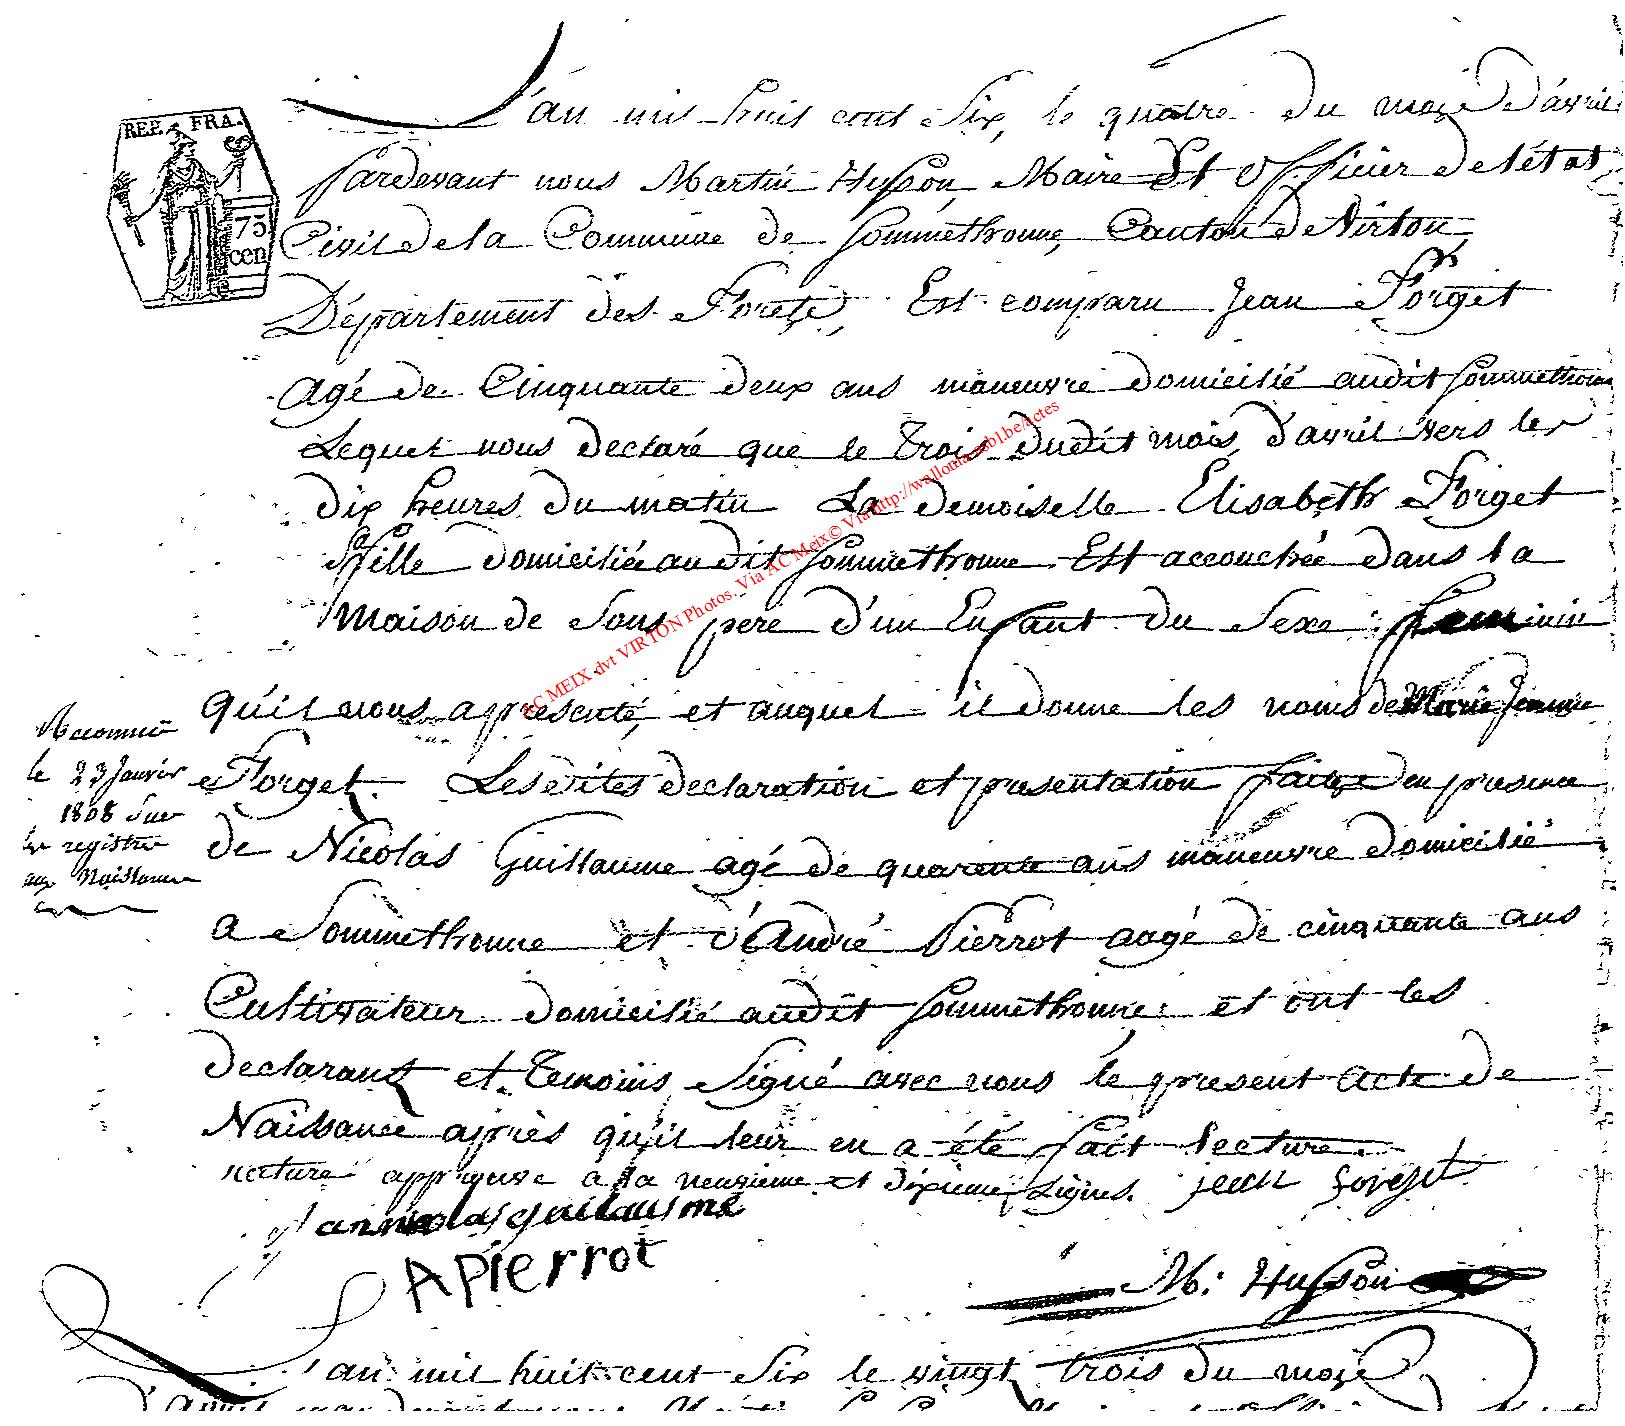 REP. FRA.
75
cen
L'an mil huit cent Six, le quatre du moie D'avril
pardevant nous Martin Husson, Maire Et Officier de l'état
Civil de la Commune de Sommethonne, Canton de Virton,
Département des Forets, Est comparu Jean Forget
agé de Cinquante deux ans maneuvre domicilié audit Sommethonne
Lequel nous declaré que le Trois dudit mois d'avril vers les
dix heures du matin La demoiselle Elisabeth Forget
Sa fille domiciliée audit Sommethonne Est accouchée dans la
maison de Sons pere d'un Enfant du Sexe feminin
qu'il nous a presenté, et auquel il donne les noms de Marie Jeanne
Forget. Lesdites declaration et presentation faites en presence
de Nicolas Guillaume agé de quarente ans maneuvre domicilié
a Sommethonne et d'André Pierrot aagé de cinquante ans
Cultivateur domicilié audit Sommethonne: et ont les
declarant et Temoins Signé avec nous le present acte de
Naissance après qu'il leur en a été fait lecture.
approuve a la neuvieme et dixieme Lignes. jean forget
nicolas guillausme
A Pierrot
M: Husson
Reconnue
le 23 Janvier
1808 Sur
les registres
aux Naissances
L'an mil huit cent Six le vingt trois du moie
AC MEIX dvt VIRTON Photos. Via AC Meix© Via http://wallonia.asbl.be/actes